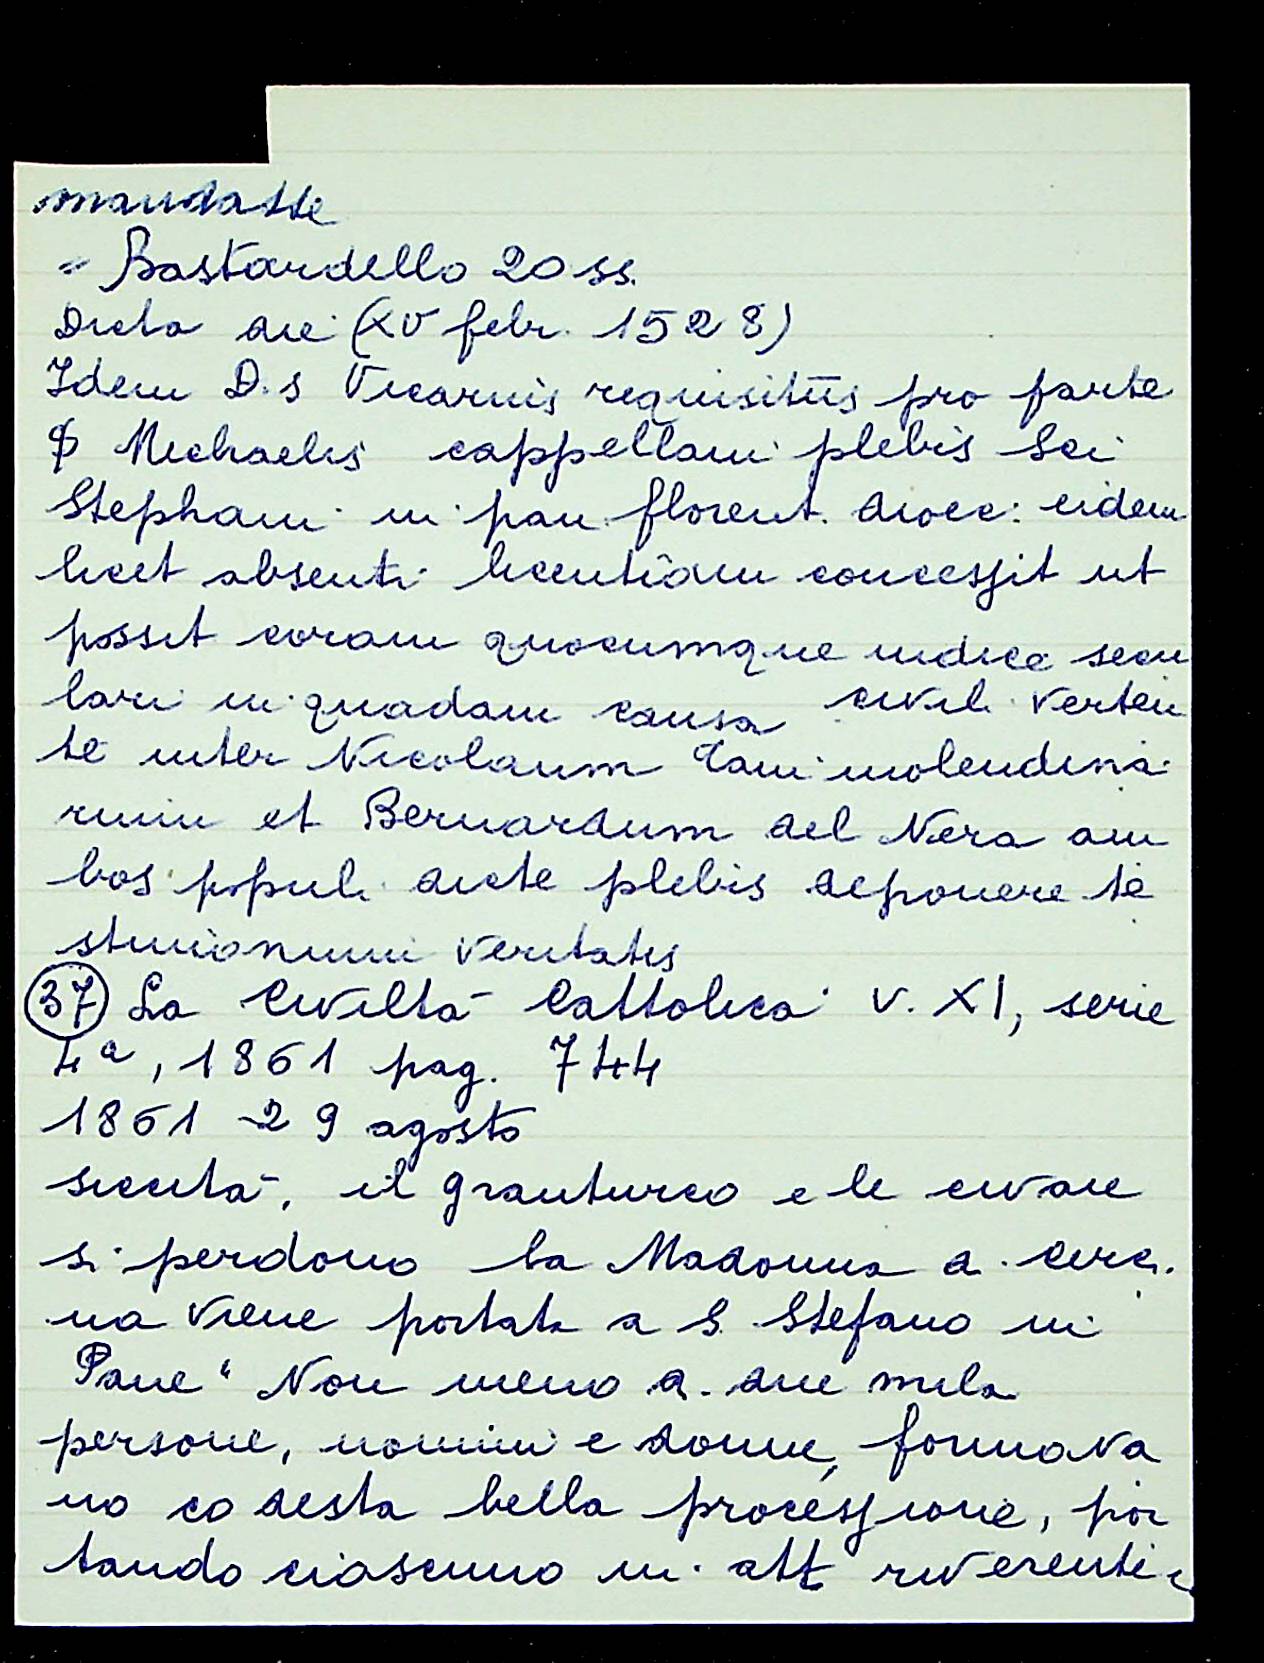 mandatte
" Bastardello 20 ss.
Dicta die (XV febr. 1528)
Idem D.s Vicarius requisitus pro parte
Michaelis cappellani plebis Sci
Stephani in pan florent. dioec: eidem
licet absenti licentiam concessit ut
possit coram quocumque iudice secu
lari in quadam causa civili verten
te inter Nicolaum Tani molendina
rium et Bernardum del Nera am
bos populi dicte plebis deponere te
stimonium veritatis
(37) La Civiltà Cattolica v. XI, serie
4a, 1861 pag. 744
1861 - 29 agosto
siccità, il granturco e le civaie
si perdono la Madonna a Cerci.
na viene portata a S. Stefano in
Pane "Non meno di due mila
persone, uomini e donne, formava
no codesta bella processione, por
tando ciascuno in att riverenti e